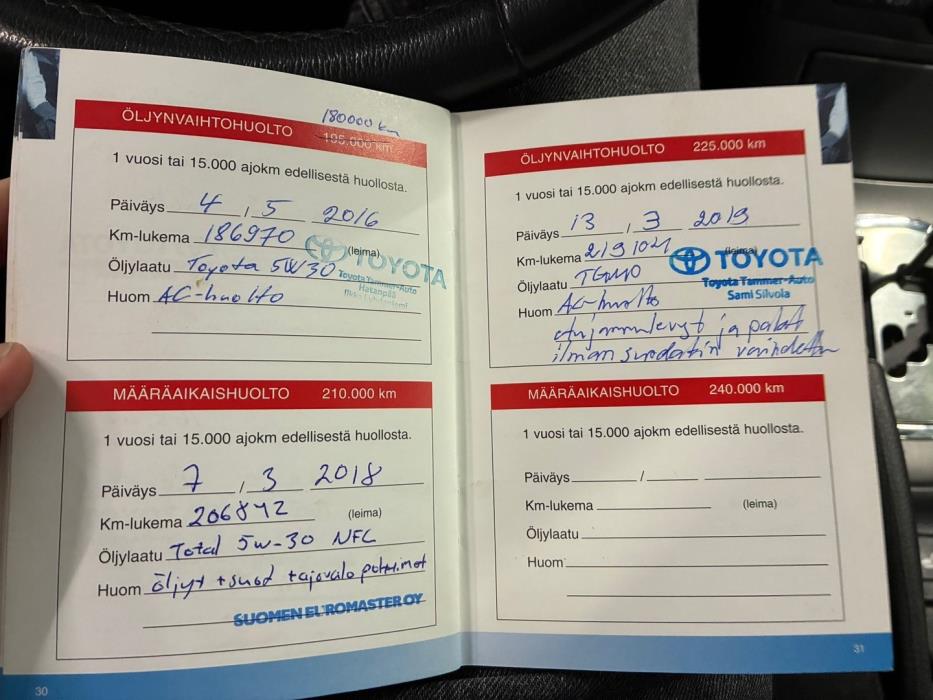 180000 km
ÖLJYNVAIHTOHUOLTO 195.000 km
1 vuosi tai 15.000 ajokm edellisestä huollosta.
Päiväys 4 / 5 2016
Km-lukema 186970 (leima)
TOYOTA
Öljylaatu Toyota 5W30
Toyota Tammer-Auto
Hatanpää
Huom AC-huolto
MÄÄRÄAIKAISHUOLTO 210.000 km
1 vuosi tai 15.000 ajokm edellisestä huollosta.
Päiväys 7 / 3 2018
Km-lukema 206842 (leima)
Öljylaatu Total 5W-30 NFC
Huom öljyt + suod + ajovalo polttimot
SUOMEN EUROMASTER OY
30
ÖLJYNVAIHTOHUOLTO 225.000 km
1 vuosi tai 15.000 ajokm edellisestä huollosta.
Päiväys 13 / 3 2019
Km-lukema (leima)
TOYOTA
Öljylaatu
Toyota Tammer-Auto
Sami Silvola
Huom AC-huolto
etujarrulevyt ja palat
ilman suodatin
MÄÄRÄAIKAISHUOLTO 240.000 km
1 vuosi tai 15.000 ajokm edellisestä huollosta.
Päiväys /
Km-lukema (leima)
Öljylaatu
Huom
31